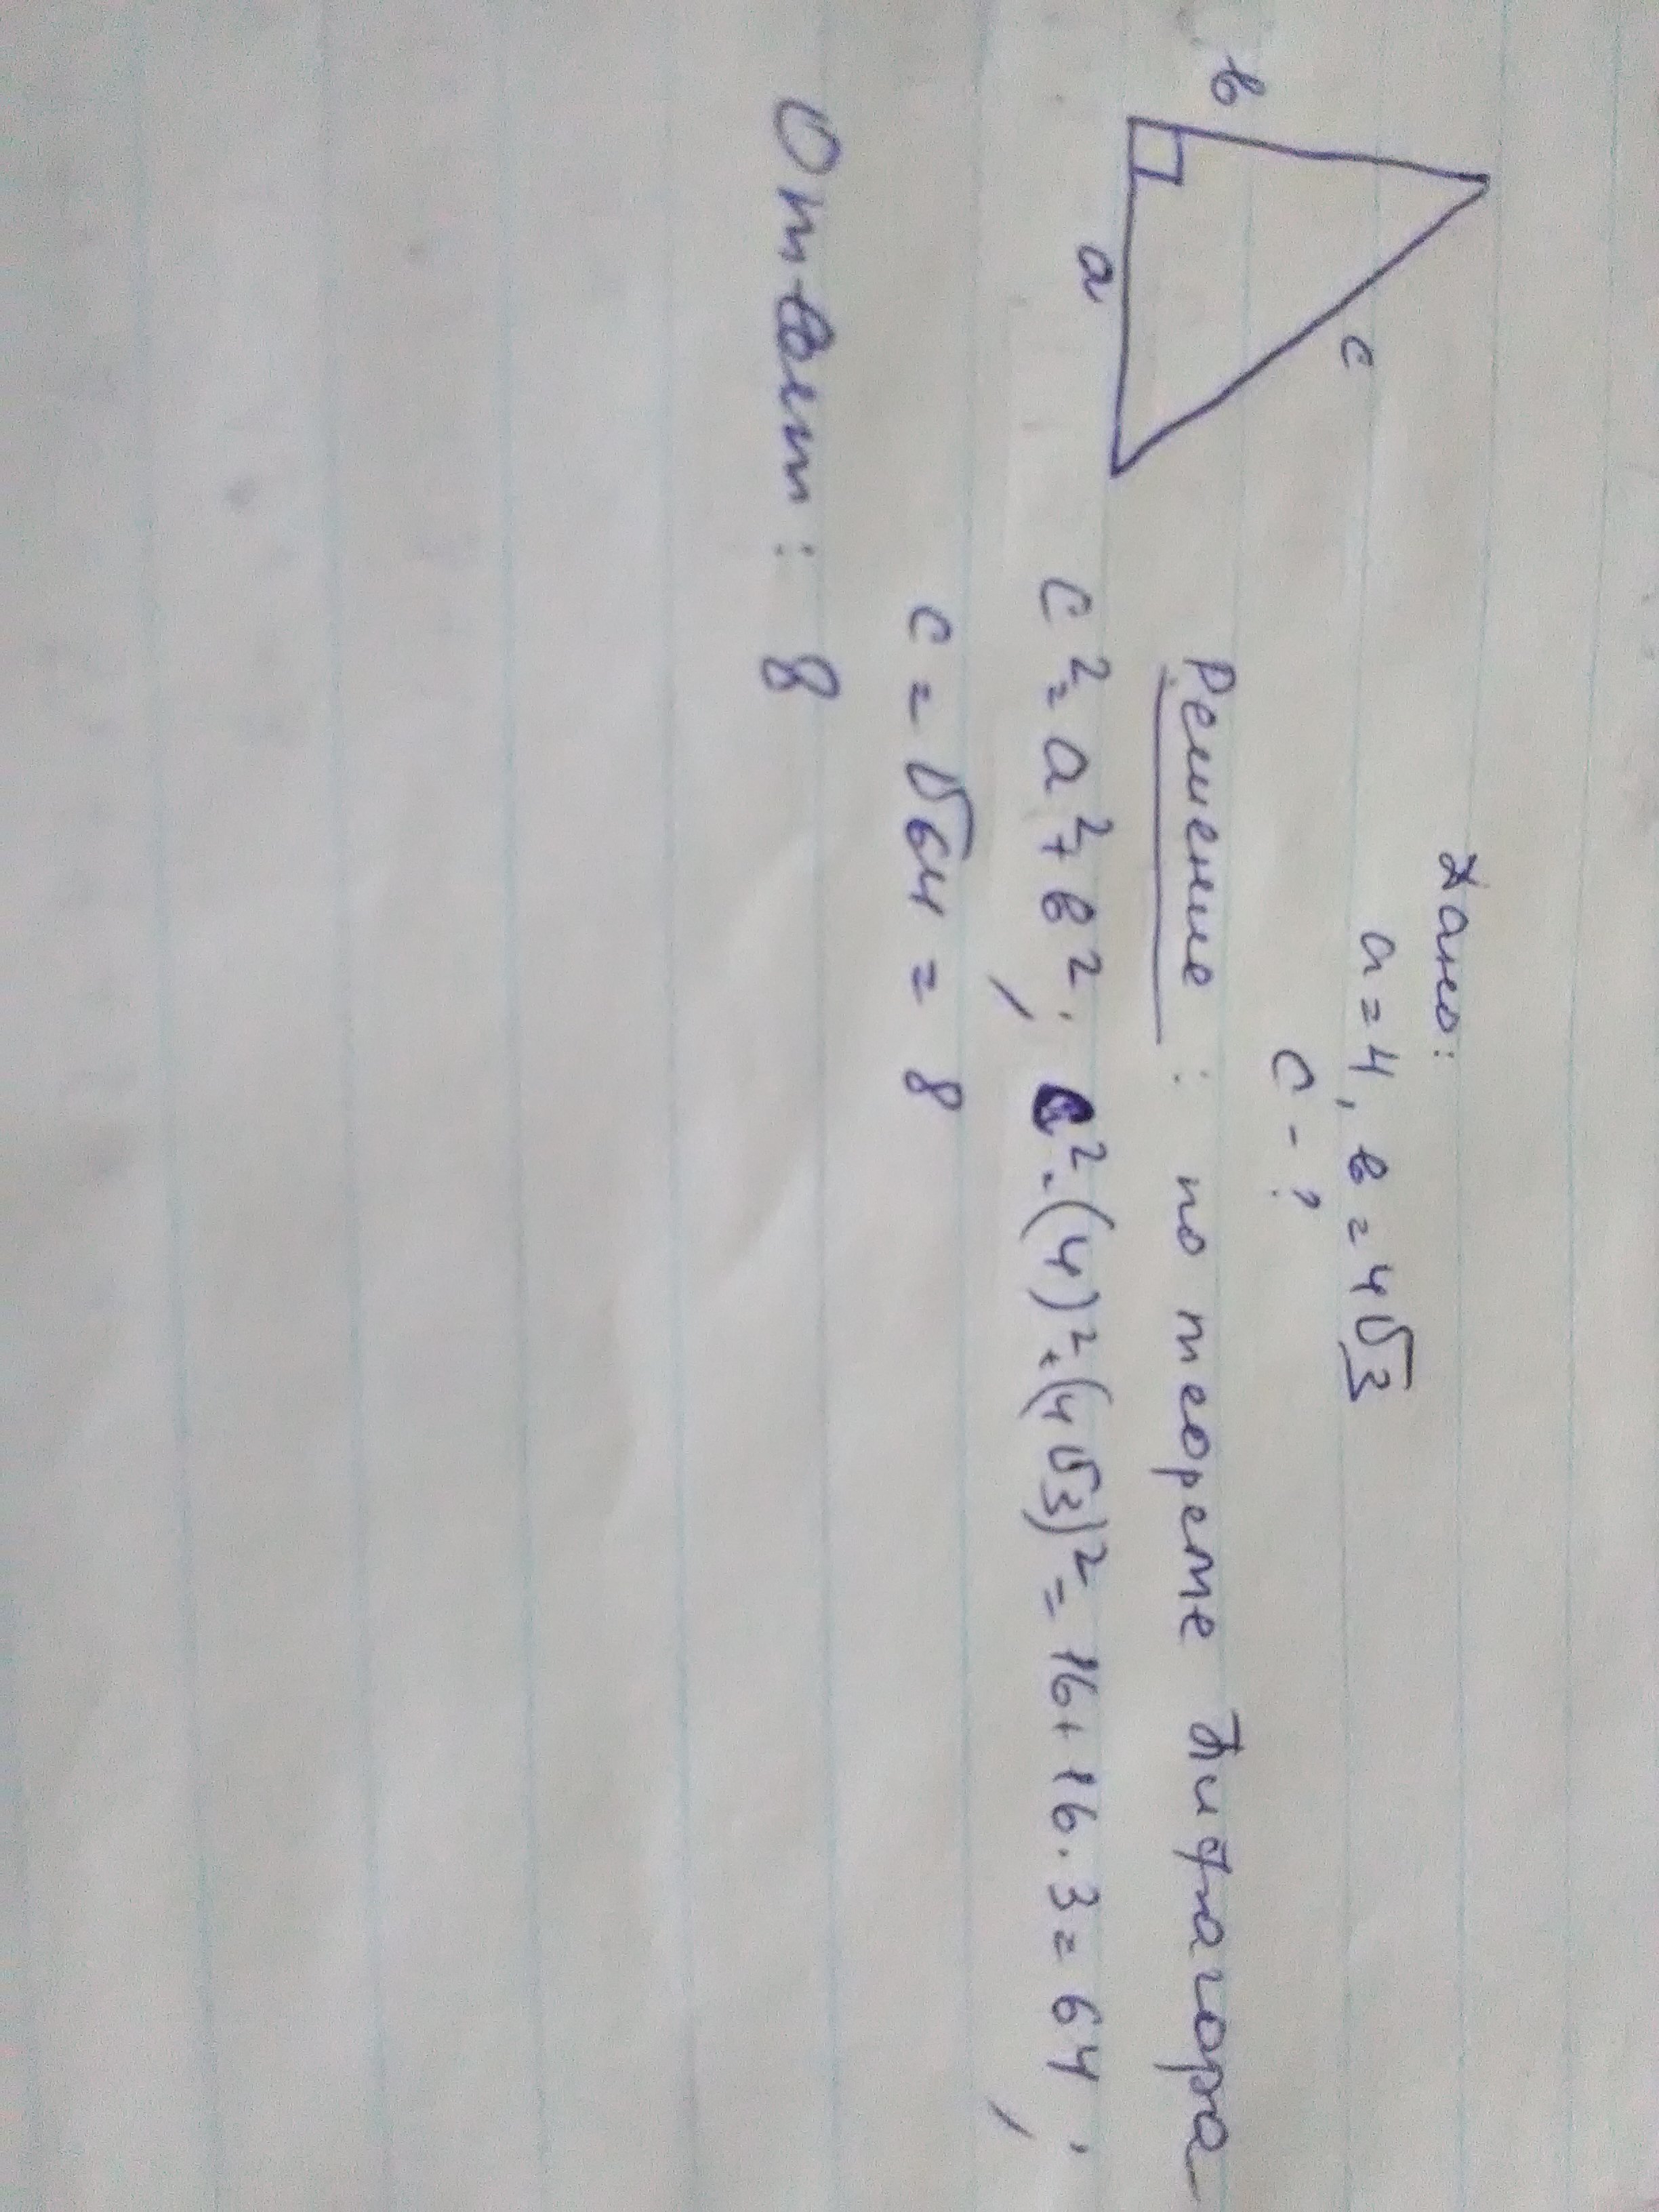 Дано:
a = 4, в = 4√3
c - ?
в
c
a
Решение : по теореме Пифагора
c² = a² + в²; c² = (4)² + (4√3)² = 16 + 16 · 3 = 64;
c = √64 = 8
Ответ : 8